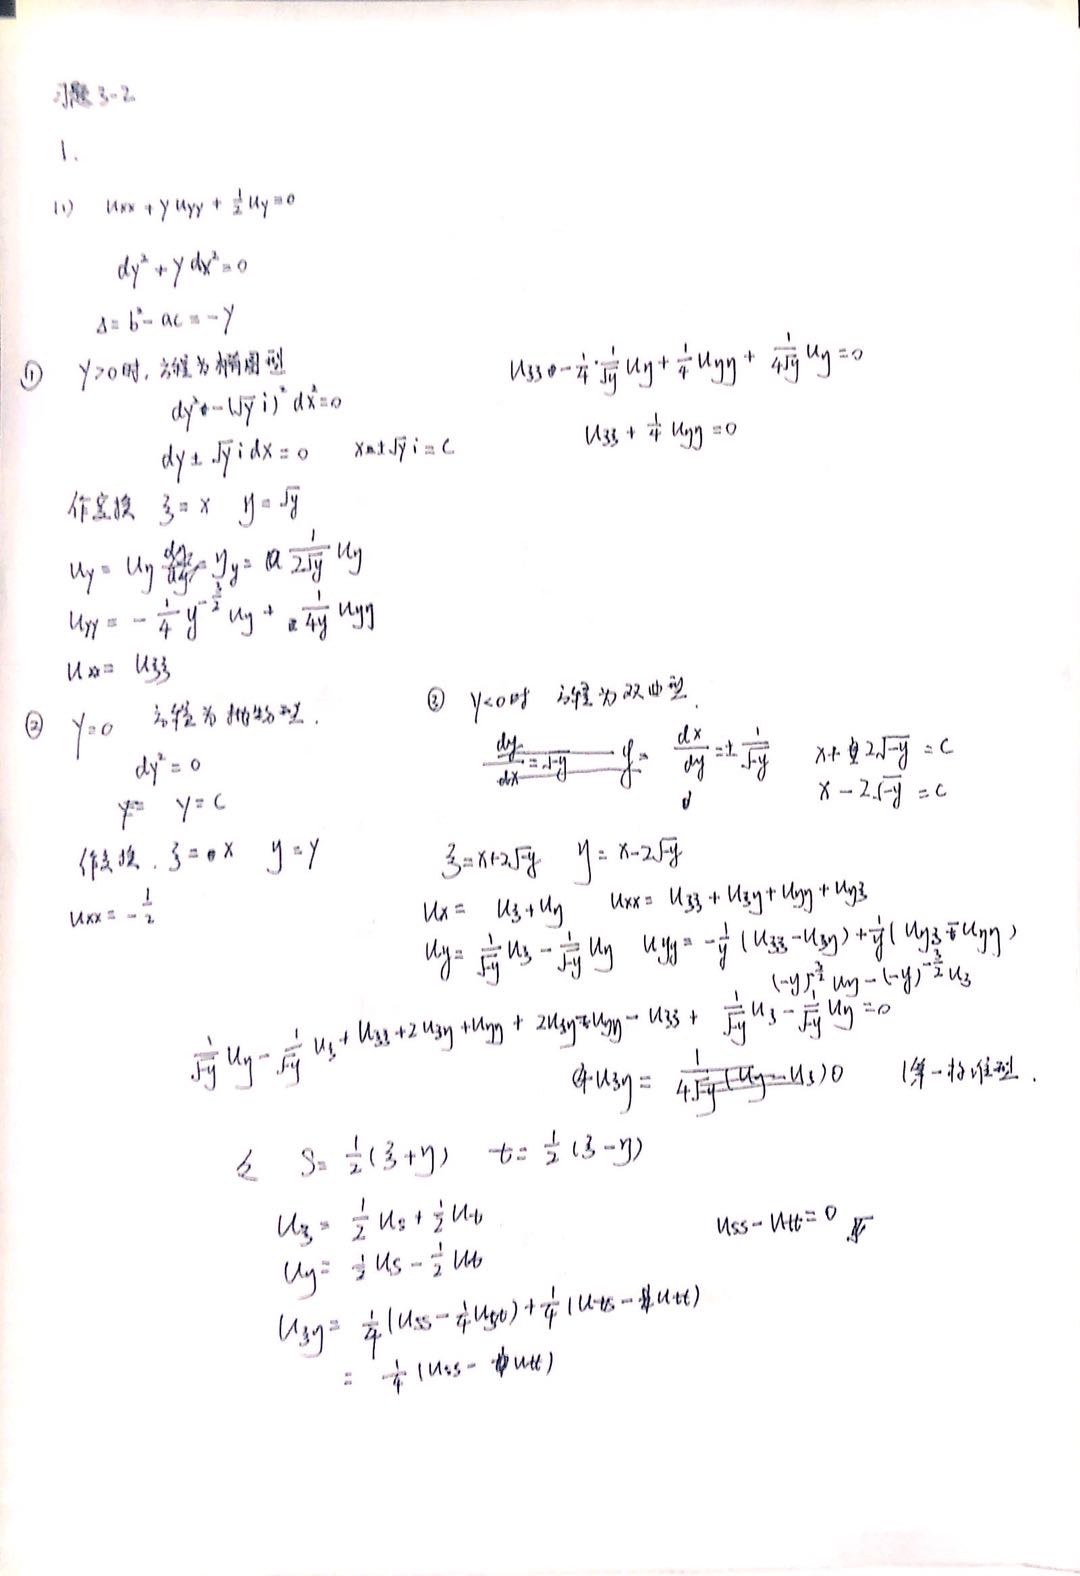 习题 3-2
1.
(1) uxx + y uyy + 1/2 uy = 0
dy² + y dx² = 0
Δ = b² - ac = -y
① y>0时, 方程为椭圆型
dy² - (√y i)² dx² = 0
dy ± √y i dx = 0   x ± √y i = C
作变换 ξ = x   η = √y
uy = uη ηy = 1/(2√y) uη
uyy = -1/4 y^(-3/2) uη + 1/(4y) uηη
uxx = uξξ
uξξ - 1/4 · 1/√y uη + 1/4 uηη + 1/(4√y) uη = 0
uξξ + 1/4 uηη = 0
② y=0 方程为抛物型.
dy² = 0
y = C
作变换. ξ = x   η = y
uxx = -1/2
③ y<0时 方程为双曲型.
dx/dy = ± 1/√-y   x + 2√-y = C
x - 2√-y = C
ξ = x+2√-y   η = x-2√-y
ux = uξ + uη   uxx = uξξ + uξη + uηη + uηξ
uy = 1/√-y uξ - 1/√-y uη   uyy = -1/y (uξξ - uξη) + 1/y (uηξ - uηη)
(-y)^(-3/2) uη - (-y)^(-3/2) uξ
1/√-y uη - 1/√-y uξ + uξξ + 2uξη + uηη + 2uξη - uηη - uξξ + 1/√-y uξ - 1/√-y uη = 0
4uξη = 0   (第一标准型.
令 s = 1/2 (ξ+η)   t = 1/2 (ξ-η)
uξ = 1/2 us + 1/2 ut
uη = 1/2 us - 1/2 ut
uss - utt = 0
uξη = 1/4 (uss - 1/4 ust) + 1/4 (uts - utt)
= 1/4 (uss - utt)